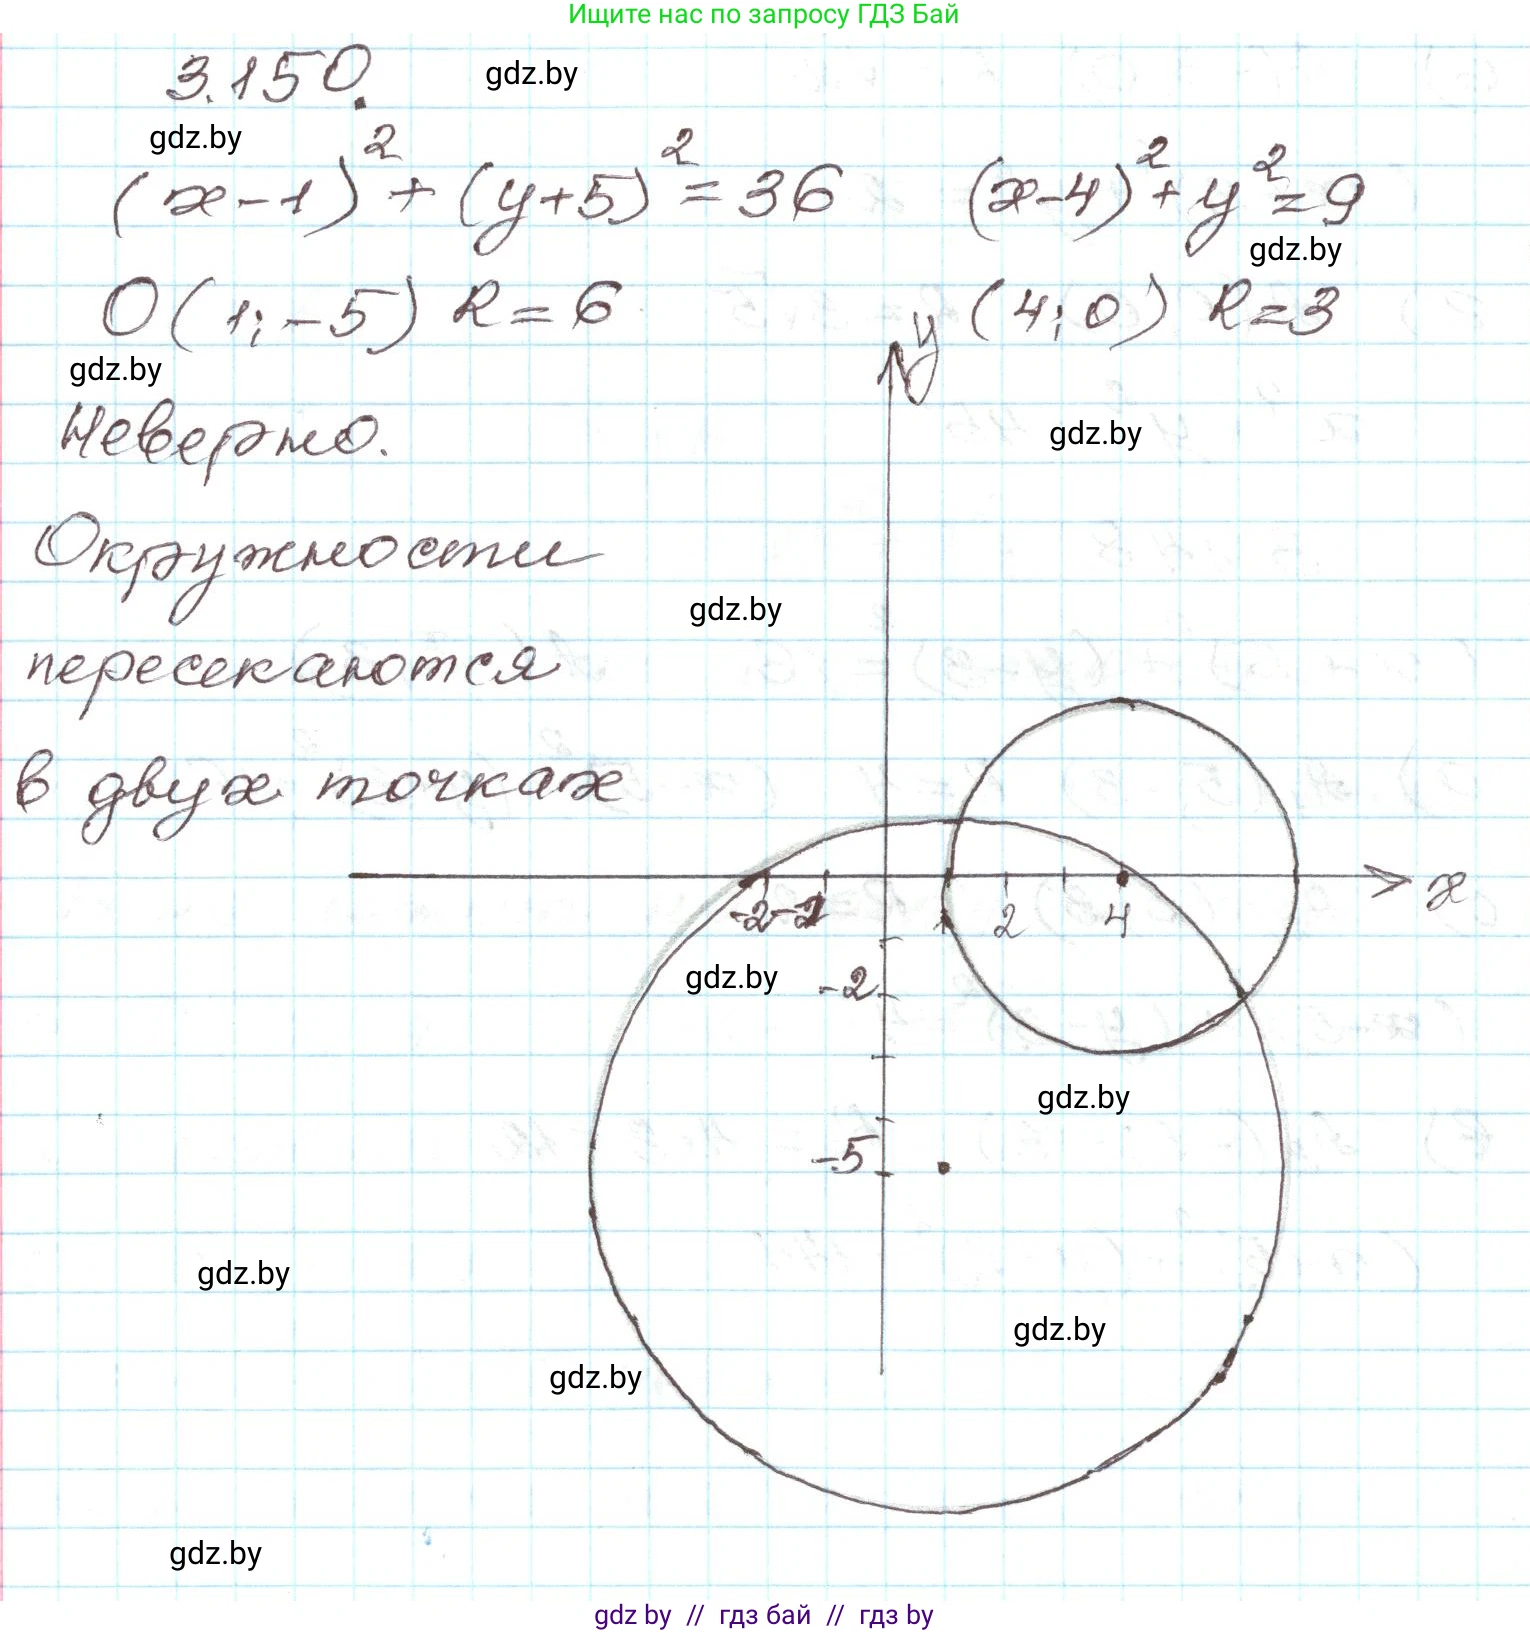 Ищите нас по запросу ГДЗ Бай
3.150.
gdz.by
gdz.by
(x-1)² + (y+5)² = 36
(x-4)² + y² = 9
gdz.by
O(1; -5) R = 6
(4; 0) R = 3
gdz.by
y
Неверно.
gdz.by
Окружности
gdz.by
пересекаются
в двух точках
x
-2
-1
1
2
4
gdz.by
-2
gdz.by
-5
gdz.by
gdz.by
gdz.by
gdz.by
gdz by // гдз бай // гдз by